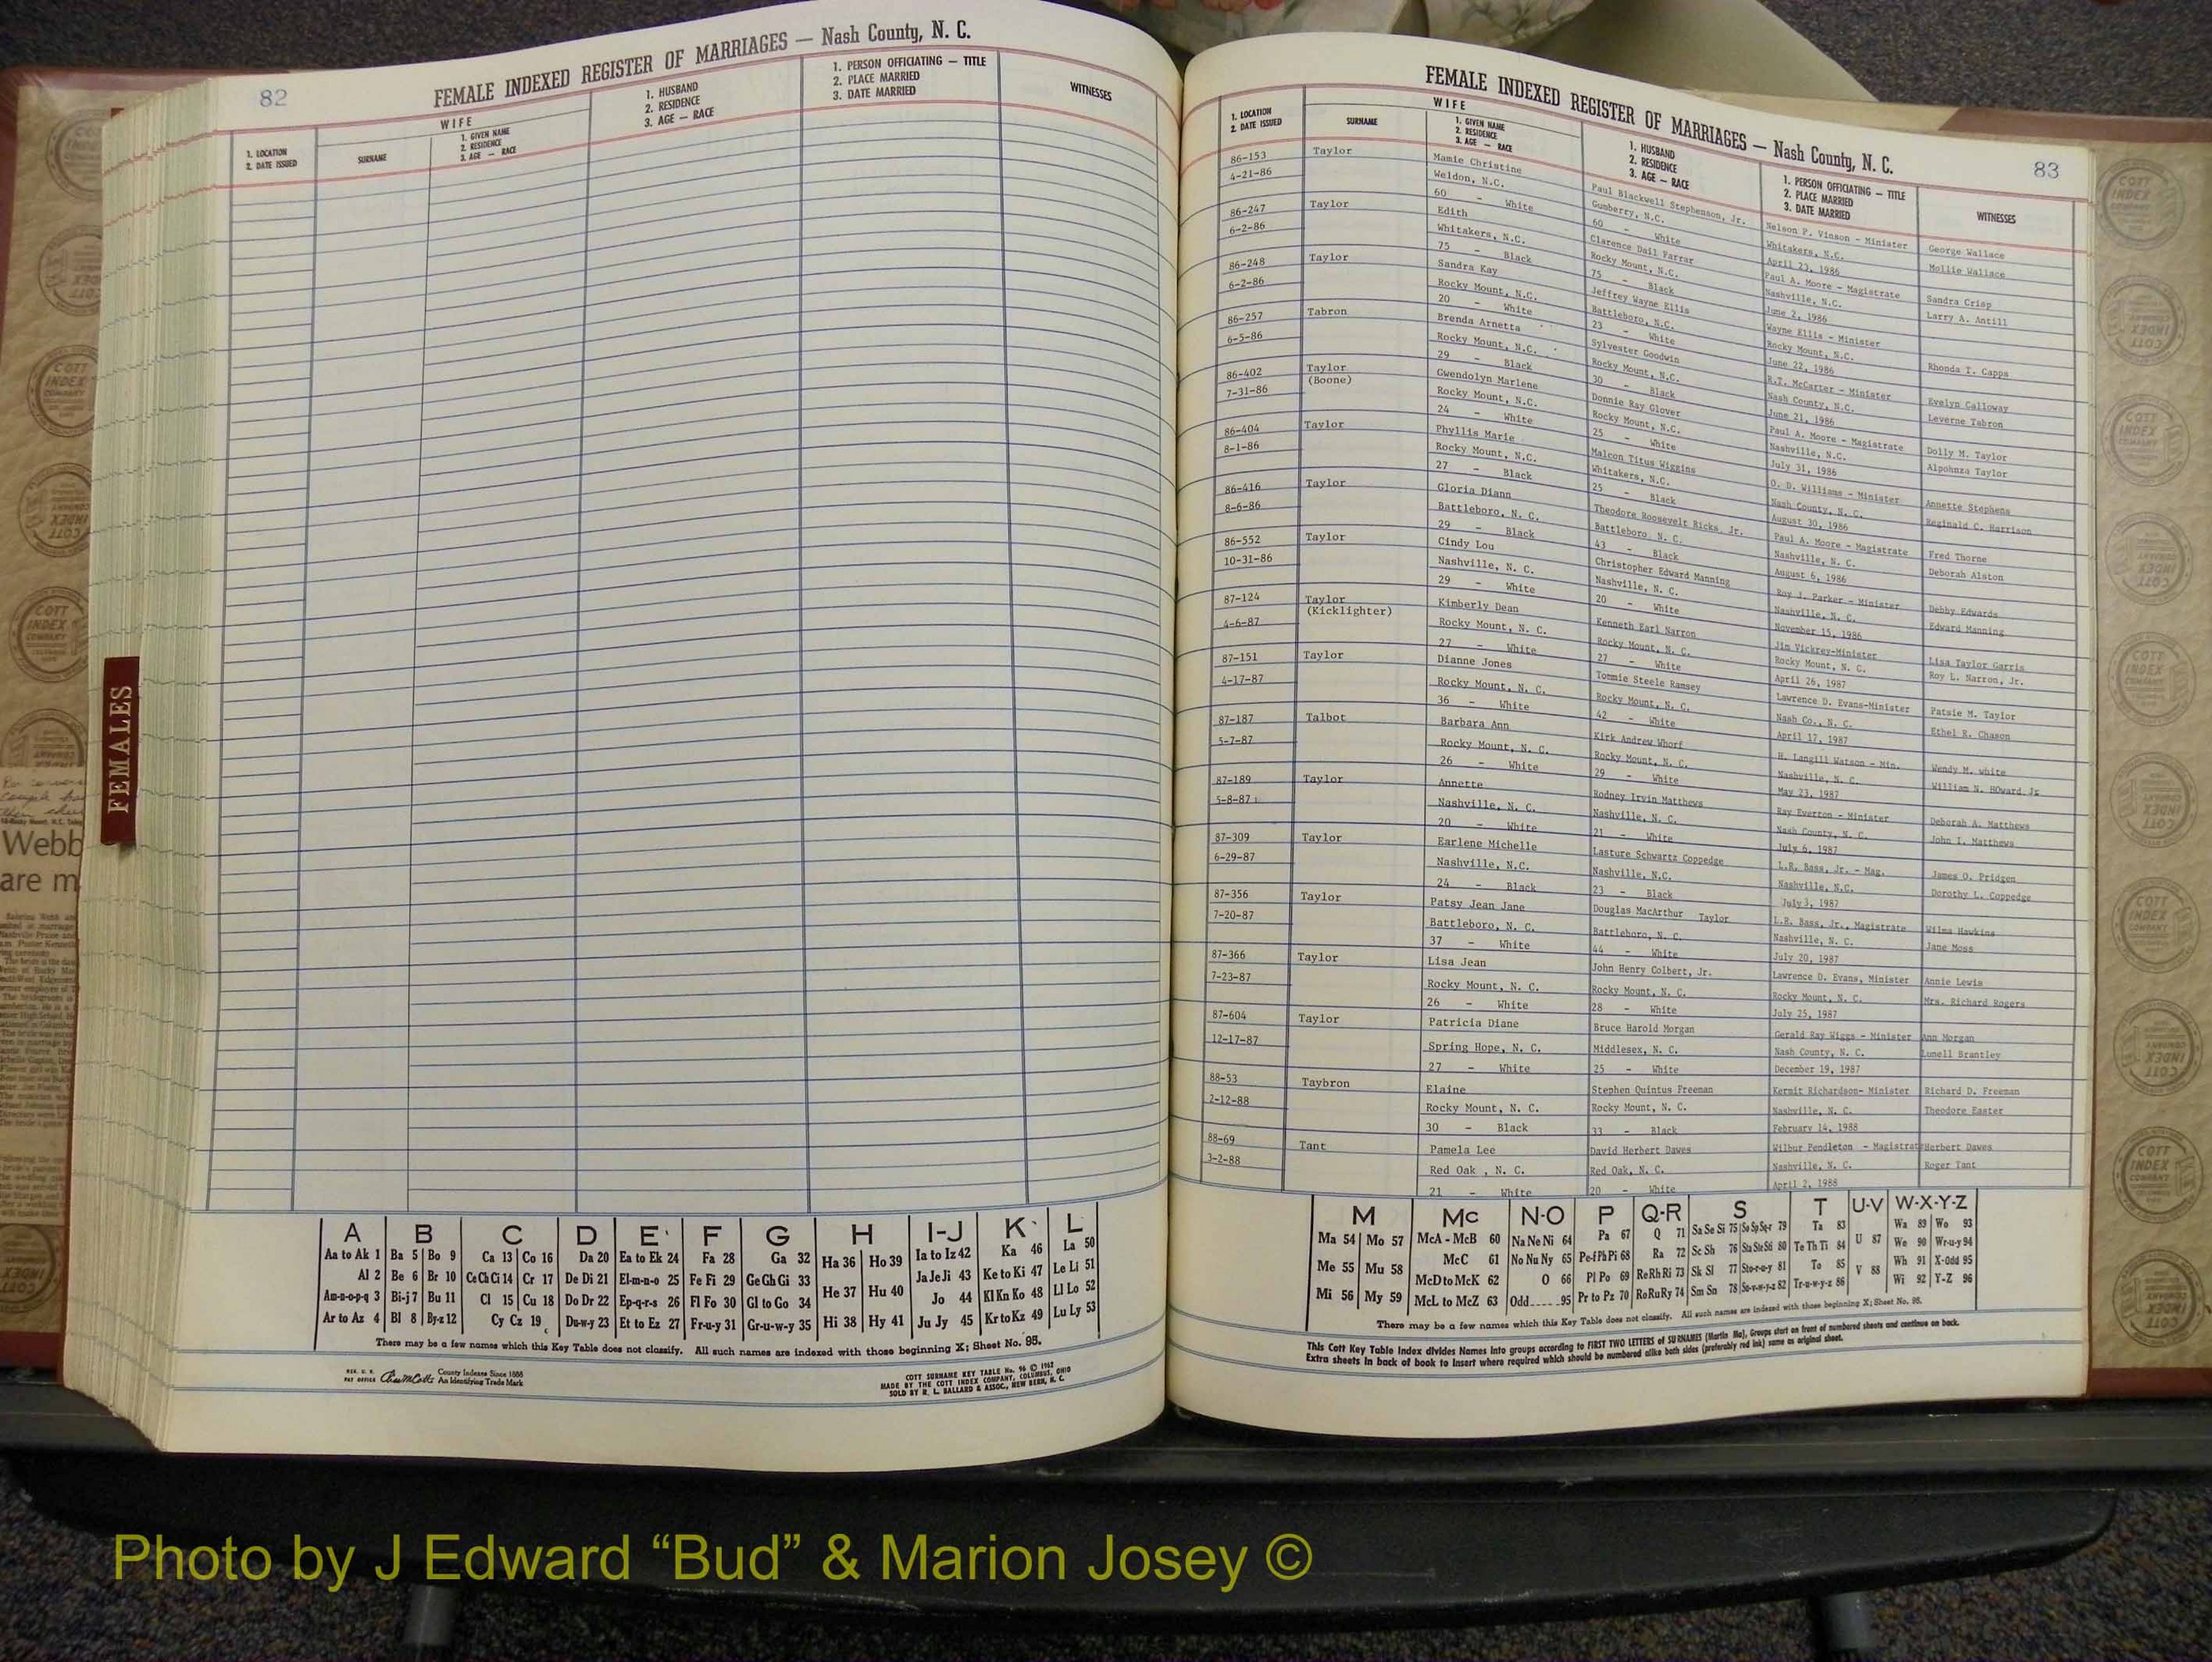 82
FEMALE INDEXED REGISTER OF MARRIAGES — Nash County, N. C.
1. LOCATION
2. DATE ISSUED
WIFE
SURNAME
1. GIVEN NAME
2. RESIDENCE
3. AGE — RACE
1. HUSBAND
2. RESIDENCE
3. AGE — RACE
1. PERSON OFFICIATING — TITLE
2. PLACE MARRIED
3. DATE MARRIED
WITNESSES
FEMALES
Webb
are m
A B C D E F G H I-J K L
Aa to Ak 1 Ba 5 Bo 9 Ca 13 Co 16 Da 20 Ea to Ek 24 Fa 28 Ga 32 Ha 36 Ho 39 Ia to Iz 42 Ka 46 La 50
Al 2 Be 6 Br 10 Ce Ch Ci 14 Cr 17 De Di 21 El-m-n-o 25 Fe Fi 29 Ge Gh Gi 33 He 37 Hu 40 Ja Je Ji 43 Ke to Ki 47 Le Li 51
Am-n-o-p-q 3 Bi-j 7 Bu 11 Cl 15 Cu 18 Do Dr 22 Ep-q-r-s 26 Fl Fo 30 Gl to Go 34 Hi 38 Hy 41 Jo 44 Kl Kn Ko 48 Ll Lo 52
Ar to Az 4 Bl 8 By-z 12 Cy Cz 19 Du-w-y 23 Et to Ez 27 Fr-u-y 31 Gr-u-w-y 35 Ju Jy 45 Kr to Kz 49 Lu Ly 53
There may be a few names which this Key Table does not classify. All such names are indexed with those beginning X; Sheet No. 95.
County Indexes Since 1888
An Identifying Trade Mark
COTT SURNAME KEY TABLE No. 96 © 1962
MADE BY THE COTT INDEX COMPANY, COLUMBUS, OHIO
SOLD BY R. L. BALLARD & ASSOC., NEW BERN, N. C.
FEMALE INDEXED REGISTER OF MARRIAGES — Nash County, N. C.
83
1. LOCATION
2. DATE ISSUED
WIFE
SURNAME
1. GIVEN NAME
2. RESIDENCE
3. AGE — RACE
1. HUSBAND
2. RESIDENCE
3. AGE — RACE
1. PERSON OFFICIATING — TITLE
2. PLACE MARRIED
3. DATE MARRIED
WITNESSES
86-153 Taylor Mamie Christine Paul Blackwell Stephenson, Jr. Nelson P. Vinson - Minister George Wallace
4-21-86 Weldon, N.C. Gumberry, N.C. Whitakers, N.C. Mollie Wallace
60 - White 60 - White April 23, 1986
86-247 Taylor Edith Clarence Dail Farrar Paul A. Moore - Magistrate Sandra Crisp
6-2-86 Whitakers, N.C. Rocky Mount, N.C. Nashville, N.C. Larry A. Antill
75 - Black 75 - Black June 2, 1986
86-248 Taylor Sandra Kay Jeffrey Wayne Ellis Wayne Ellis - Minister Rhonda T. Capps
6-2-86 Rocky Mount, N.C. Battleboro, N.C. Rocky Mount, N.C.
20 - White 23 - White June 22, 1986
86-257 Tabron Brenda Arnetta Sylvester Goodwin R.T. McCarter - Minister Evelyn Calloway
6-5-86 Rocky Mount, N.C. Rocky Mount, N.C. Nash County, N.C. Leverne Tabron
29 - Black 30 - Black June 21, 1986
86-402 Taylor (Boone) Gwendolyn Marlene Donnie Ray Glover Paul A. Moore - Magistrate Dolly M. Taylor
7-31-86 Rocky Mount, N.C. Rocky Mount, N.C. Nashville, N.C. Alpohnza Taylor
24 - White 25 - White July 31, 1986
86-404 Taylor Phyllis Marie Malcon Titus Wiggins O. D. Williams - Minister Annette Stephens
8-1-86 Rocky Mount, N.C. Whitakers, N.C. Nash County, N. C. Reginald C. Harrison
27 - Black 25 - Black August 30, 1986
86-416 Taylor Gloria Diann Theodore Roosevelt Ricks, Jr. Paul A. Moore - Magistrate Fred Thorne
8-6-86 Battleboro, N. C. Battleboro N. C. Nashville, N. C. Deborah Alston
29 - Black 43 - Black August 6, 1986
86-552 Taylor Cindy Lou Christopher Edward Manning Roy J. Parker - Minister Debby Edwards
10-31-86 Nashville, N. C. Nashville, N. C. Nashville, N. C. Edward Manning
29 - White 20 - White November 15, 1986
87-124 Taylor (Kicklighter) Kimberly Dean Kenneth Earl Narron Jim Vickrey-Minister Lisa Taylor Garris
4-6-87 Rocky Mount, N. C. Rocky Mount, N. C. Rocky Mount, N. C. Roy L. Narron, Jr.
27 - White 27 - White April 26, 1987
87-151 Taylor Dianne Jones Tommie Steele Ramsey Lawrence D. Evans-Minister Patsie M. Taylor
4-17-87 Rocky Mount, N. C. Rocky Mount, N. C. Nash Co., N. C. Ethel R. Chason
36 - White 42 - White April 17, 1987
87-187 Talbot Barbara Ann Kirk Andrew Whorf H. Langill Watson - Min. Wendy M. white
5-7-87 Rocky Mount, N. C. Rocky Mount, N. C. Nashville, N. C. William N. HOward Jr
26 - White 29 - White May 23, 1987
87-189 Taylor Annette Rodney Irvin Matthews Ray Everton - Minister Deborah A. Matthews
5-8-87 Nashville, N. C. Nashville, N. C. Nash County, N. C. John I. Matthews
20 - White 21 - White July 6, 1987
87-309 Taylor Earlene Michelle Lasture Schwartz Coppedge L.R. Bass, Jr. - Mag. James O. Pridgen
6-29-87 Nashville, N.C. Nashville, N.C. Nashville, N.C. Dorothy L. Coppedge
24 - Black 23 - Black July 3, 1987
87-356 Taylor Patsy Jean Jane Douglas MacArthur Taylor L.R. Bass, Jr., Magistrate Wilma Hawkins
7-20-87 Battleboro, N. C. Battleboro, N. C. Nashville, N. C. Jane Moss
37 - White 44 - White July 20, 1987
87-366 Taylor Lisa Jean John Henry Colbert, Jr. Lawrence D. Evans, Minister Annie Lewis
7-23-87 Rocky Mount, N. C. Rocky Mount, N. C. Rocky Mount, N. C. Mrs. Richard Rogers
26 - White 28 - White July 25, 1987
87-604 Taylor Patricia Diane Bruce Harold Morgan Gerald Ray Wiggs - Minister Ann Morgan
12-17-87 Spring Hope, N. C. Middlesex, N. C. Nash County, N. C. Lunell Brantley
27 - White 25 - White December 19, 1987
88-53 Taybron Elaine Stephen Quintus Freeman Kermit Richardson- Minister Richard D. Freeman
2-12-88 Rocky Mount, N. C. Rocky Mount, N. C. Nashville, N. C. Theodore Easter
30 - Black 33 - Black February 14, 1988
88-69 Tant Pamela Lee David Herbert Dawes Wilbur Pendleton - Magistrat Herbert Dawes
3-2-88 Red Oak , N. C. Red Oak, N. C. Nashville, N. C. Roger Tant
21 - White 20 - White April 2, 1988
M Mc N-O P Q-R S T U-V W-X-Y-Z
Ma 54 Mo 57 McA - McB 60 Na Ne Ni 64 Pa 67 Q 71 Sa Se Si 75 So Sp Sq-r 79 Ta 83 U 87 Wa 89 Wo 93
Me 55 Mu 58 McC 61 No Nu Ny 65 Pe-f Ph Pi 68 Ra 72 Sc Sh 76 Sta Ste Sti 80 Te Th Ti 84 V 88 We 90 Wr-u-y 94
McD to McK 62 O 66 Pl Po 69 Re Rh Ri 73 Sk Sl 77 Sto-r-u-y 81 To 85 Wh 91 X-Odd 95
Mi 56 My 59 McL to McZ 63 Odd 95 Pr to Pz 70 Ro Ru Ry 74 Sm Sn 78 Su-v-w-y-z 82 Tr-u-w-y-z 86 Wi 92 Y-Z 96
There may be a few names which this Key Table does not classify. All such names are indexed with those beginning X; Sheet No. 95.
This Cott Key Table Index divides Names into groups according to FIRST TWO LETTERS of SURNAMES (Martin Ma), Groups start on front of numbered sheets and continue on back.
Extra sheets in back of book to insert where required which should be numbered alike both sides (preferably red ink) same as original sheet.
Photo by J Edward “Bud” & Marion Josey ©